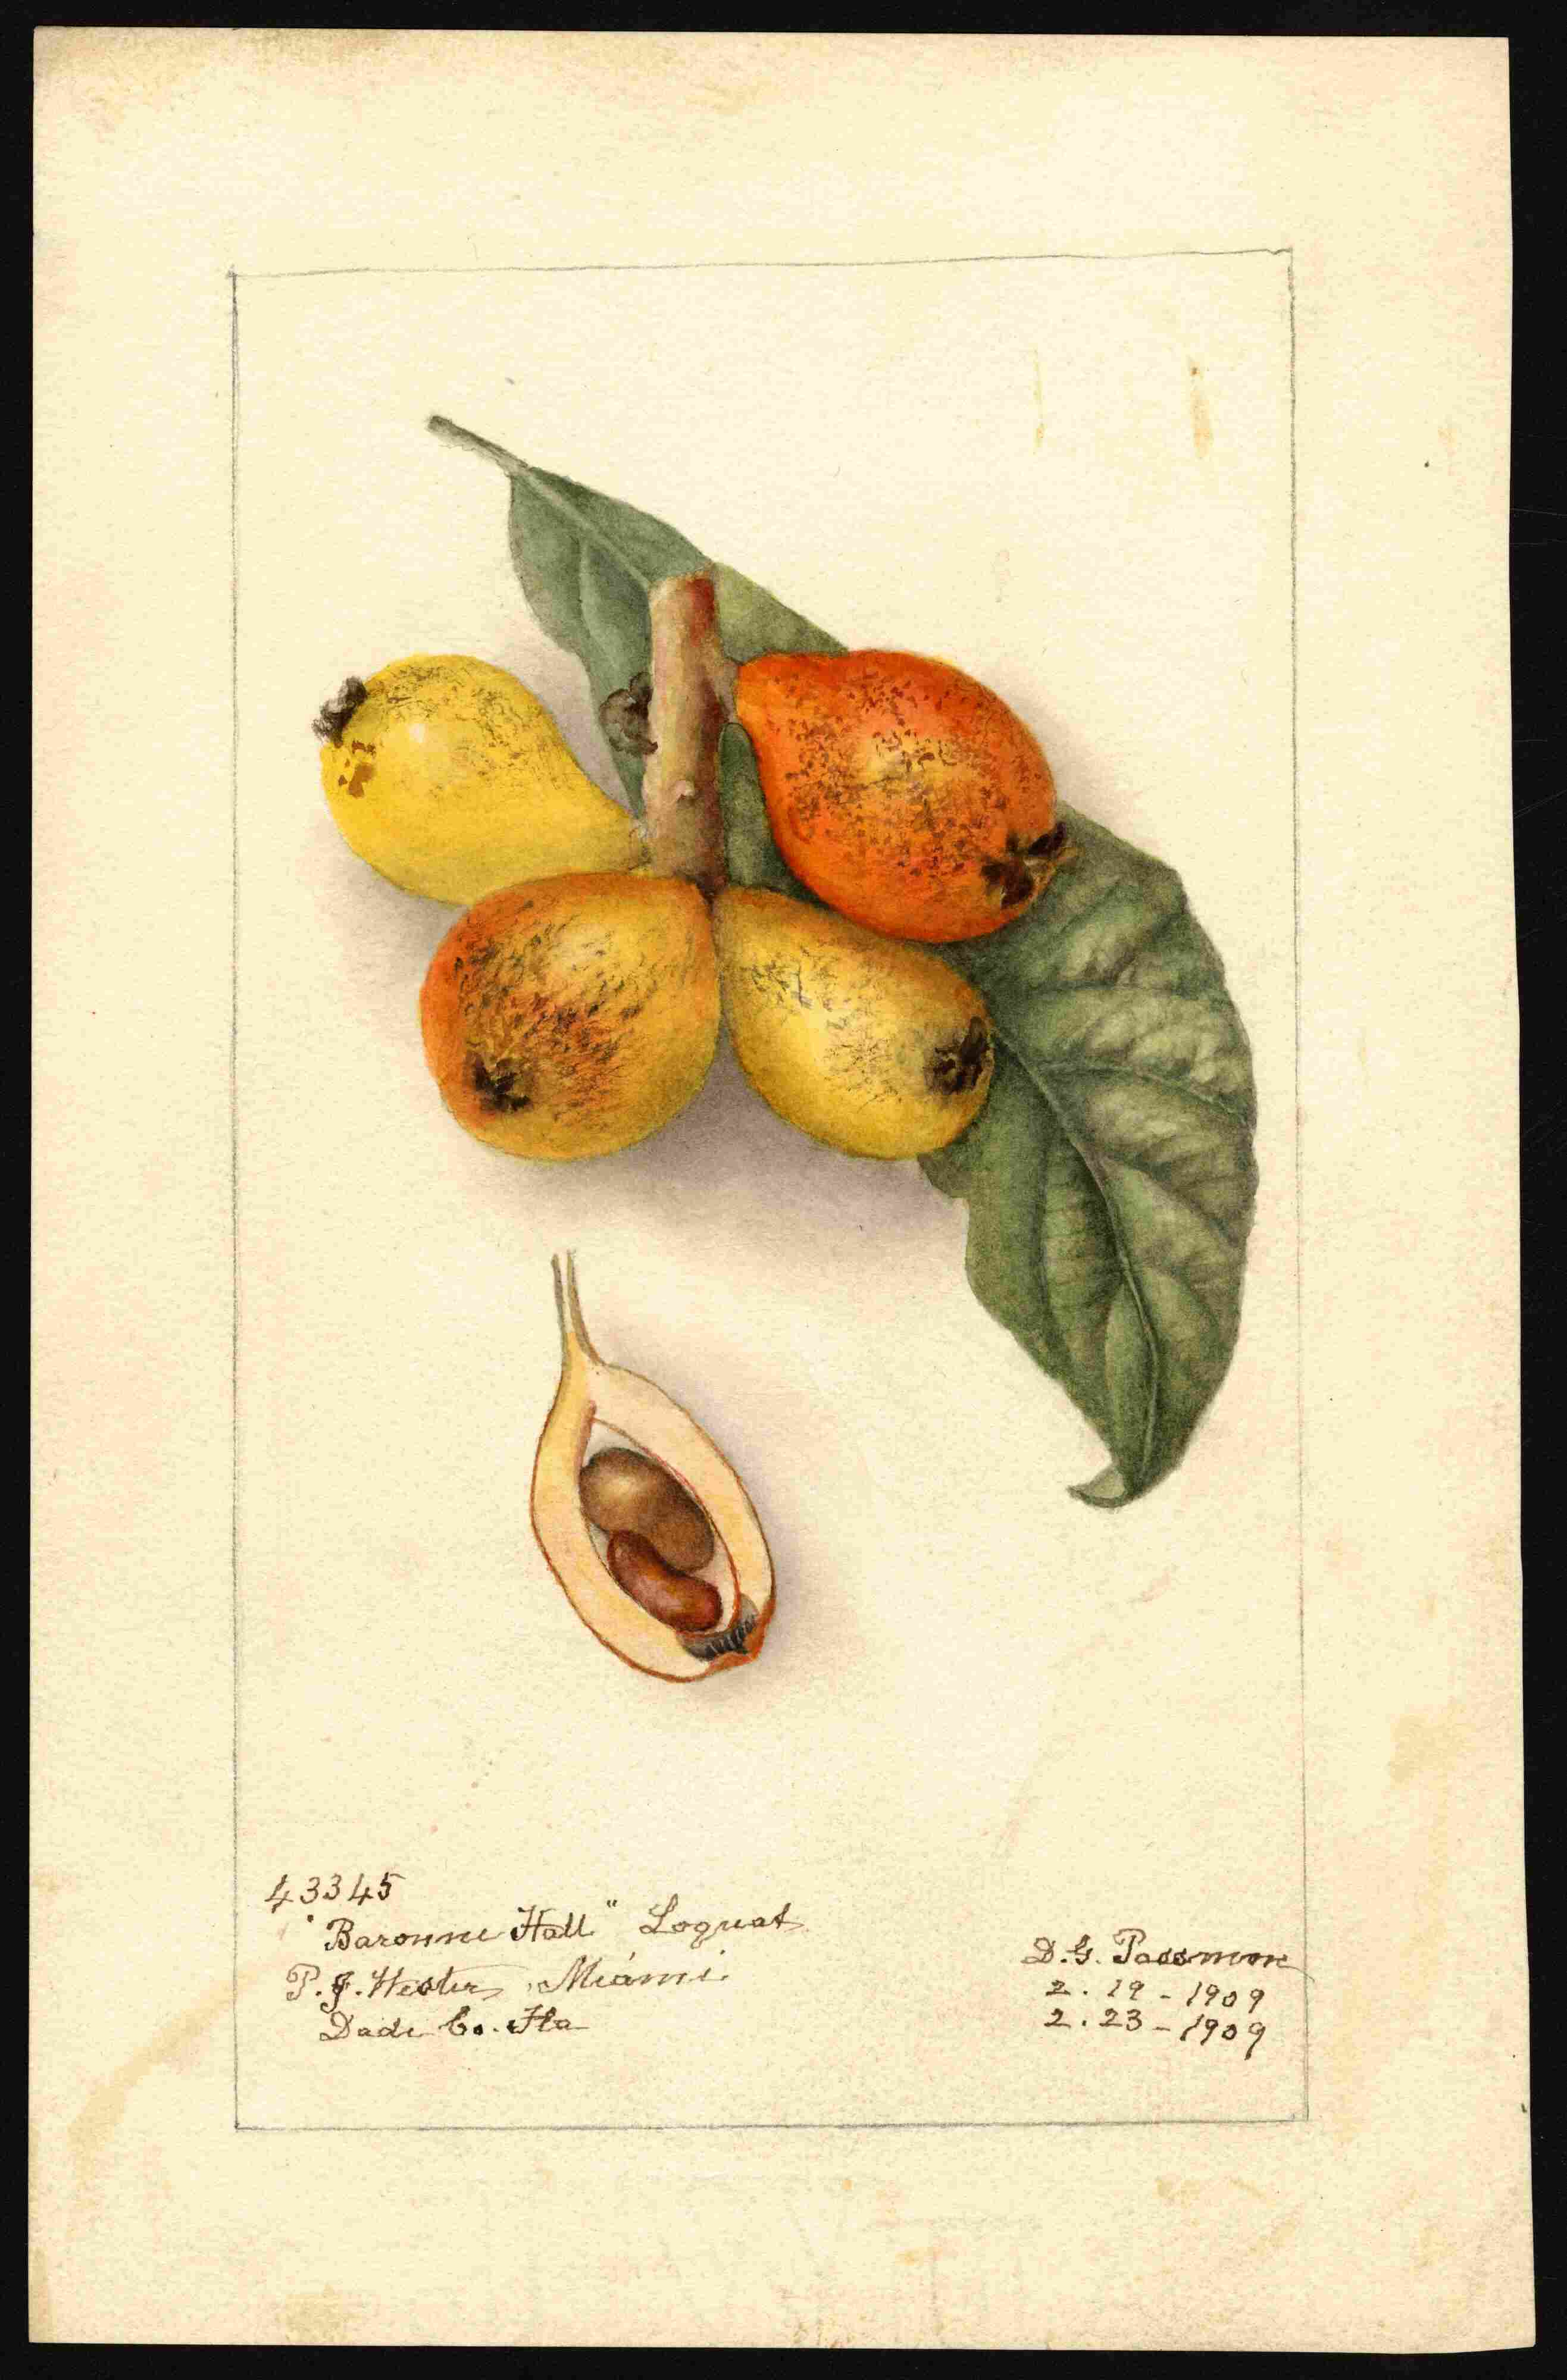 43345
"Baronne Hall" Loquat
P. J. Wester, Miami.
Dade Co. Fla
D. G. Passmore
2. 19 - 1909
2. 23 - 1909